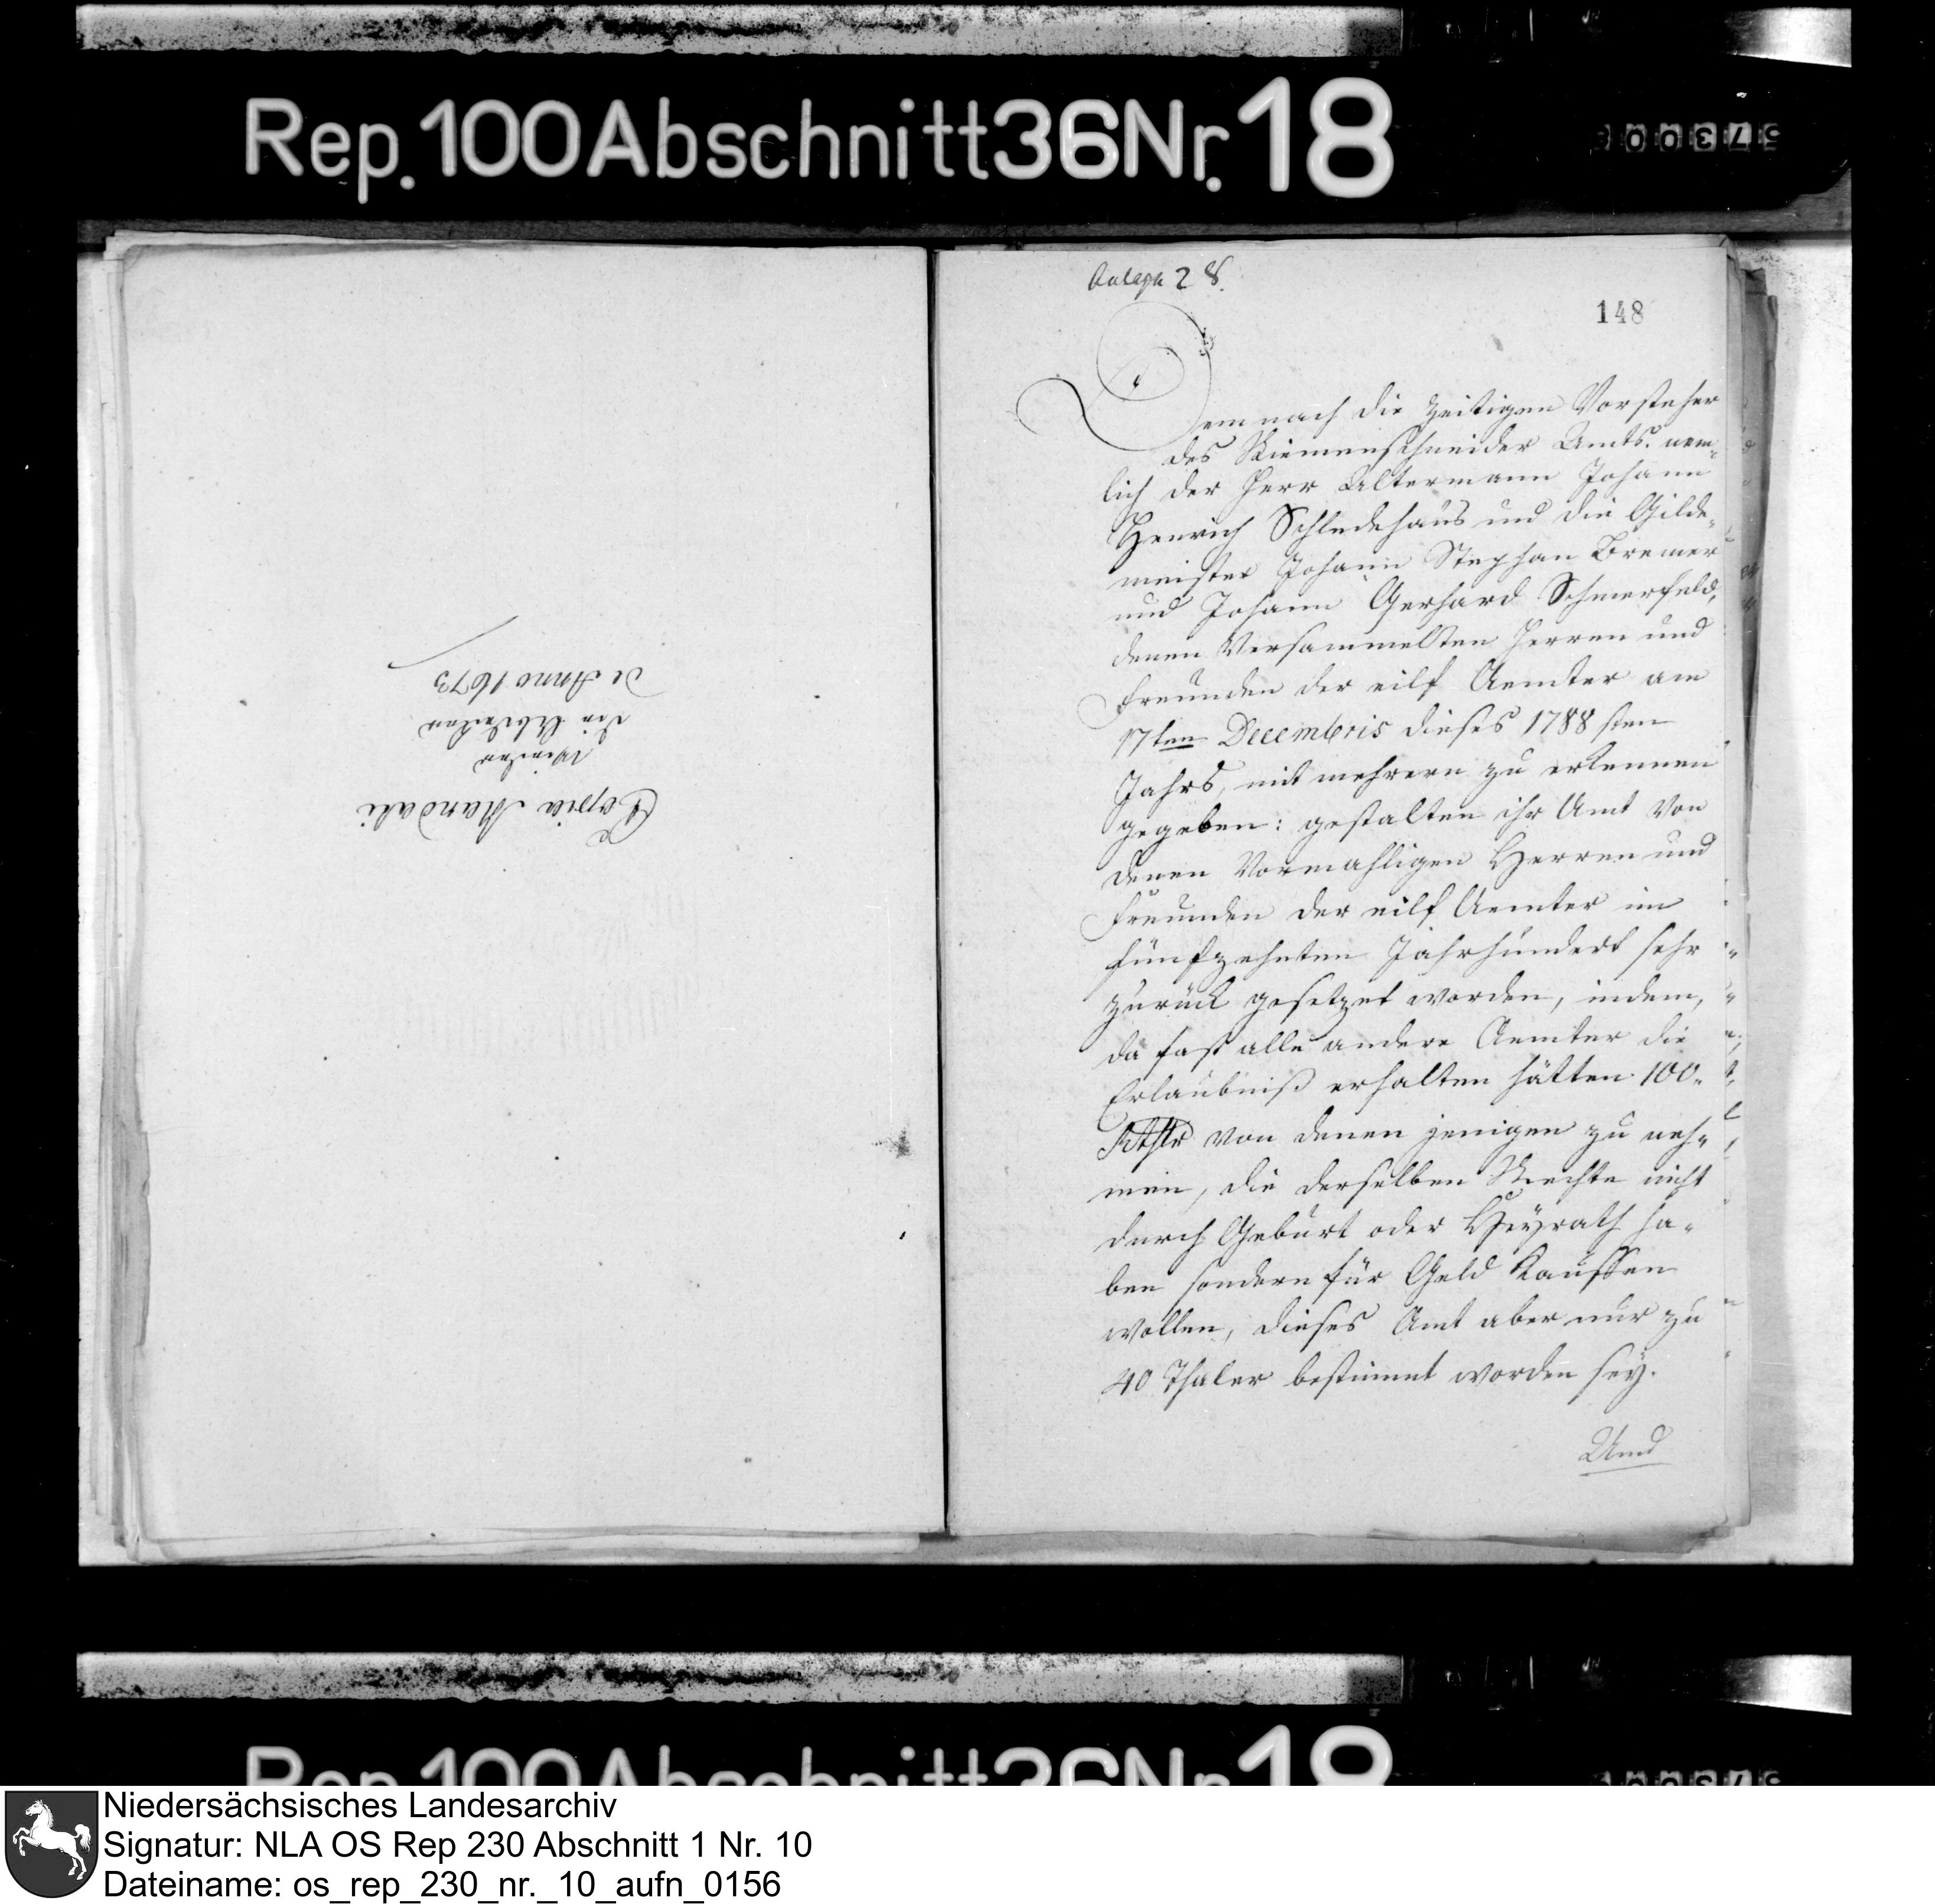 Rep. 100 Abschnitt 36 Nr. 18
Copia Mandati
wider
die Arbeiter
de Anno 1673
Anlage 28.
148
Demnach die zeitigen Vorsteher
des Riemenschneider Amts. nem-
lich der Herr Altermann Johann
Henrich Schledehaus und die Gilde-
meister Johann Stephan Bremer
und Johann Gerhard Schmerfeld,
denen Versammelten Herren und
Freunden der eilf Aemter am
17ten Decembris dieses 1788sten
Jahrs, mit mehrern zu erkennen
gegeben: gestalten ihr Amt von
denen Vormahligen Herren und
Freunden der eilf Aemter im
fünfzehnten Jahrhundert sehr
zurück gesetzet worden, indem,
da fast alle andere Aemter die
Erlaubniß erhalten hätten 100.
Rthlr von denen jenigen zu neh-
men, die derselben Rechte nicht
durch Geburt oder Heyrath ha-
ben sondern für Geld kauffen
wollen, dieses Amt aber nur zu
40 Thaler bestimmt worden sey.
Und
Niedersächsisches Landesarchiv
Signatur: NLA OS Rep 230 Abschnitt 1 Nr. 10
Dateiname: os_rep_230_nr._10_aufn_0156